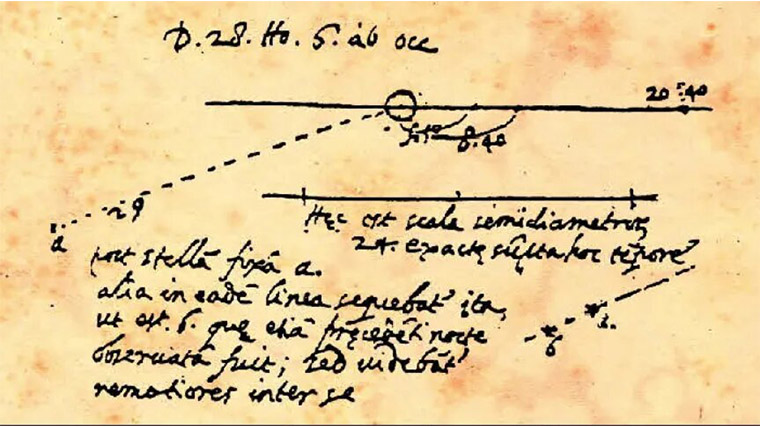 D. 28. Ho. 6. ab occ
20 : 40
8.40
29
a
Hęc est scala semidiametrorum
24. exactę sūpta hoc tēpore
post stellā fixā a.
alia in eadē linea sequebat' ita,
ut est. b. quę etiā pręcedēti nocte
observata fuit; sed videbāt'
remotiores inter se
a.
b